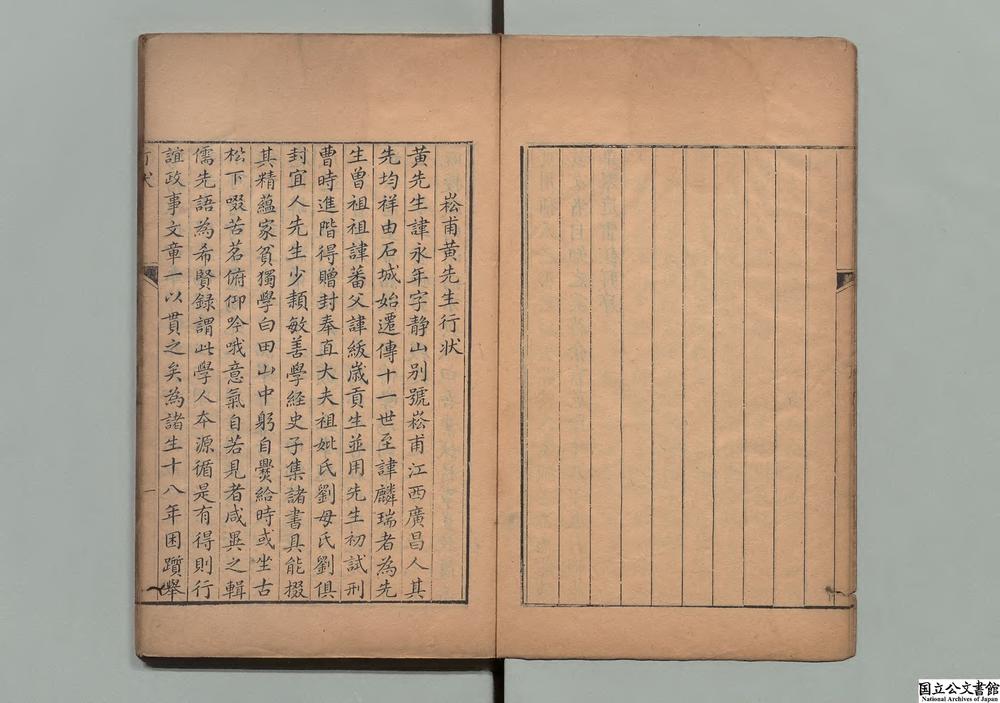 崧甫黃先生行狀
黃先生諱永年字靜山別號崧甫江西廣昌人其
先均祥由石城始遷傳十一世至諱麟瑞者為先
生曾祖祖諱蕃父諱緩歲貢生並用先生初試刑
曹時進階得贈封奉直大夫祖妣氏劉母氏劉俱
封宜人先生少穎敏善學經史子集諸書具能掇
其精蘊家貧獨學白田山中躬自爨給時或坐古
松下啜苦茗俯仰吟哦意氣自若見者咸異之輯
儒先語為希賢録謂此學人夲源循是有得則行
誼政事文章一以貫之矣為諸生十八年困躓舉
行狀
一
国立公文書館
National Archives of Japan